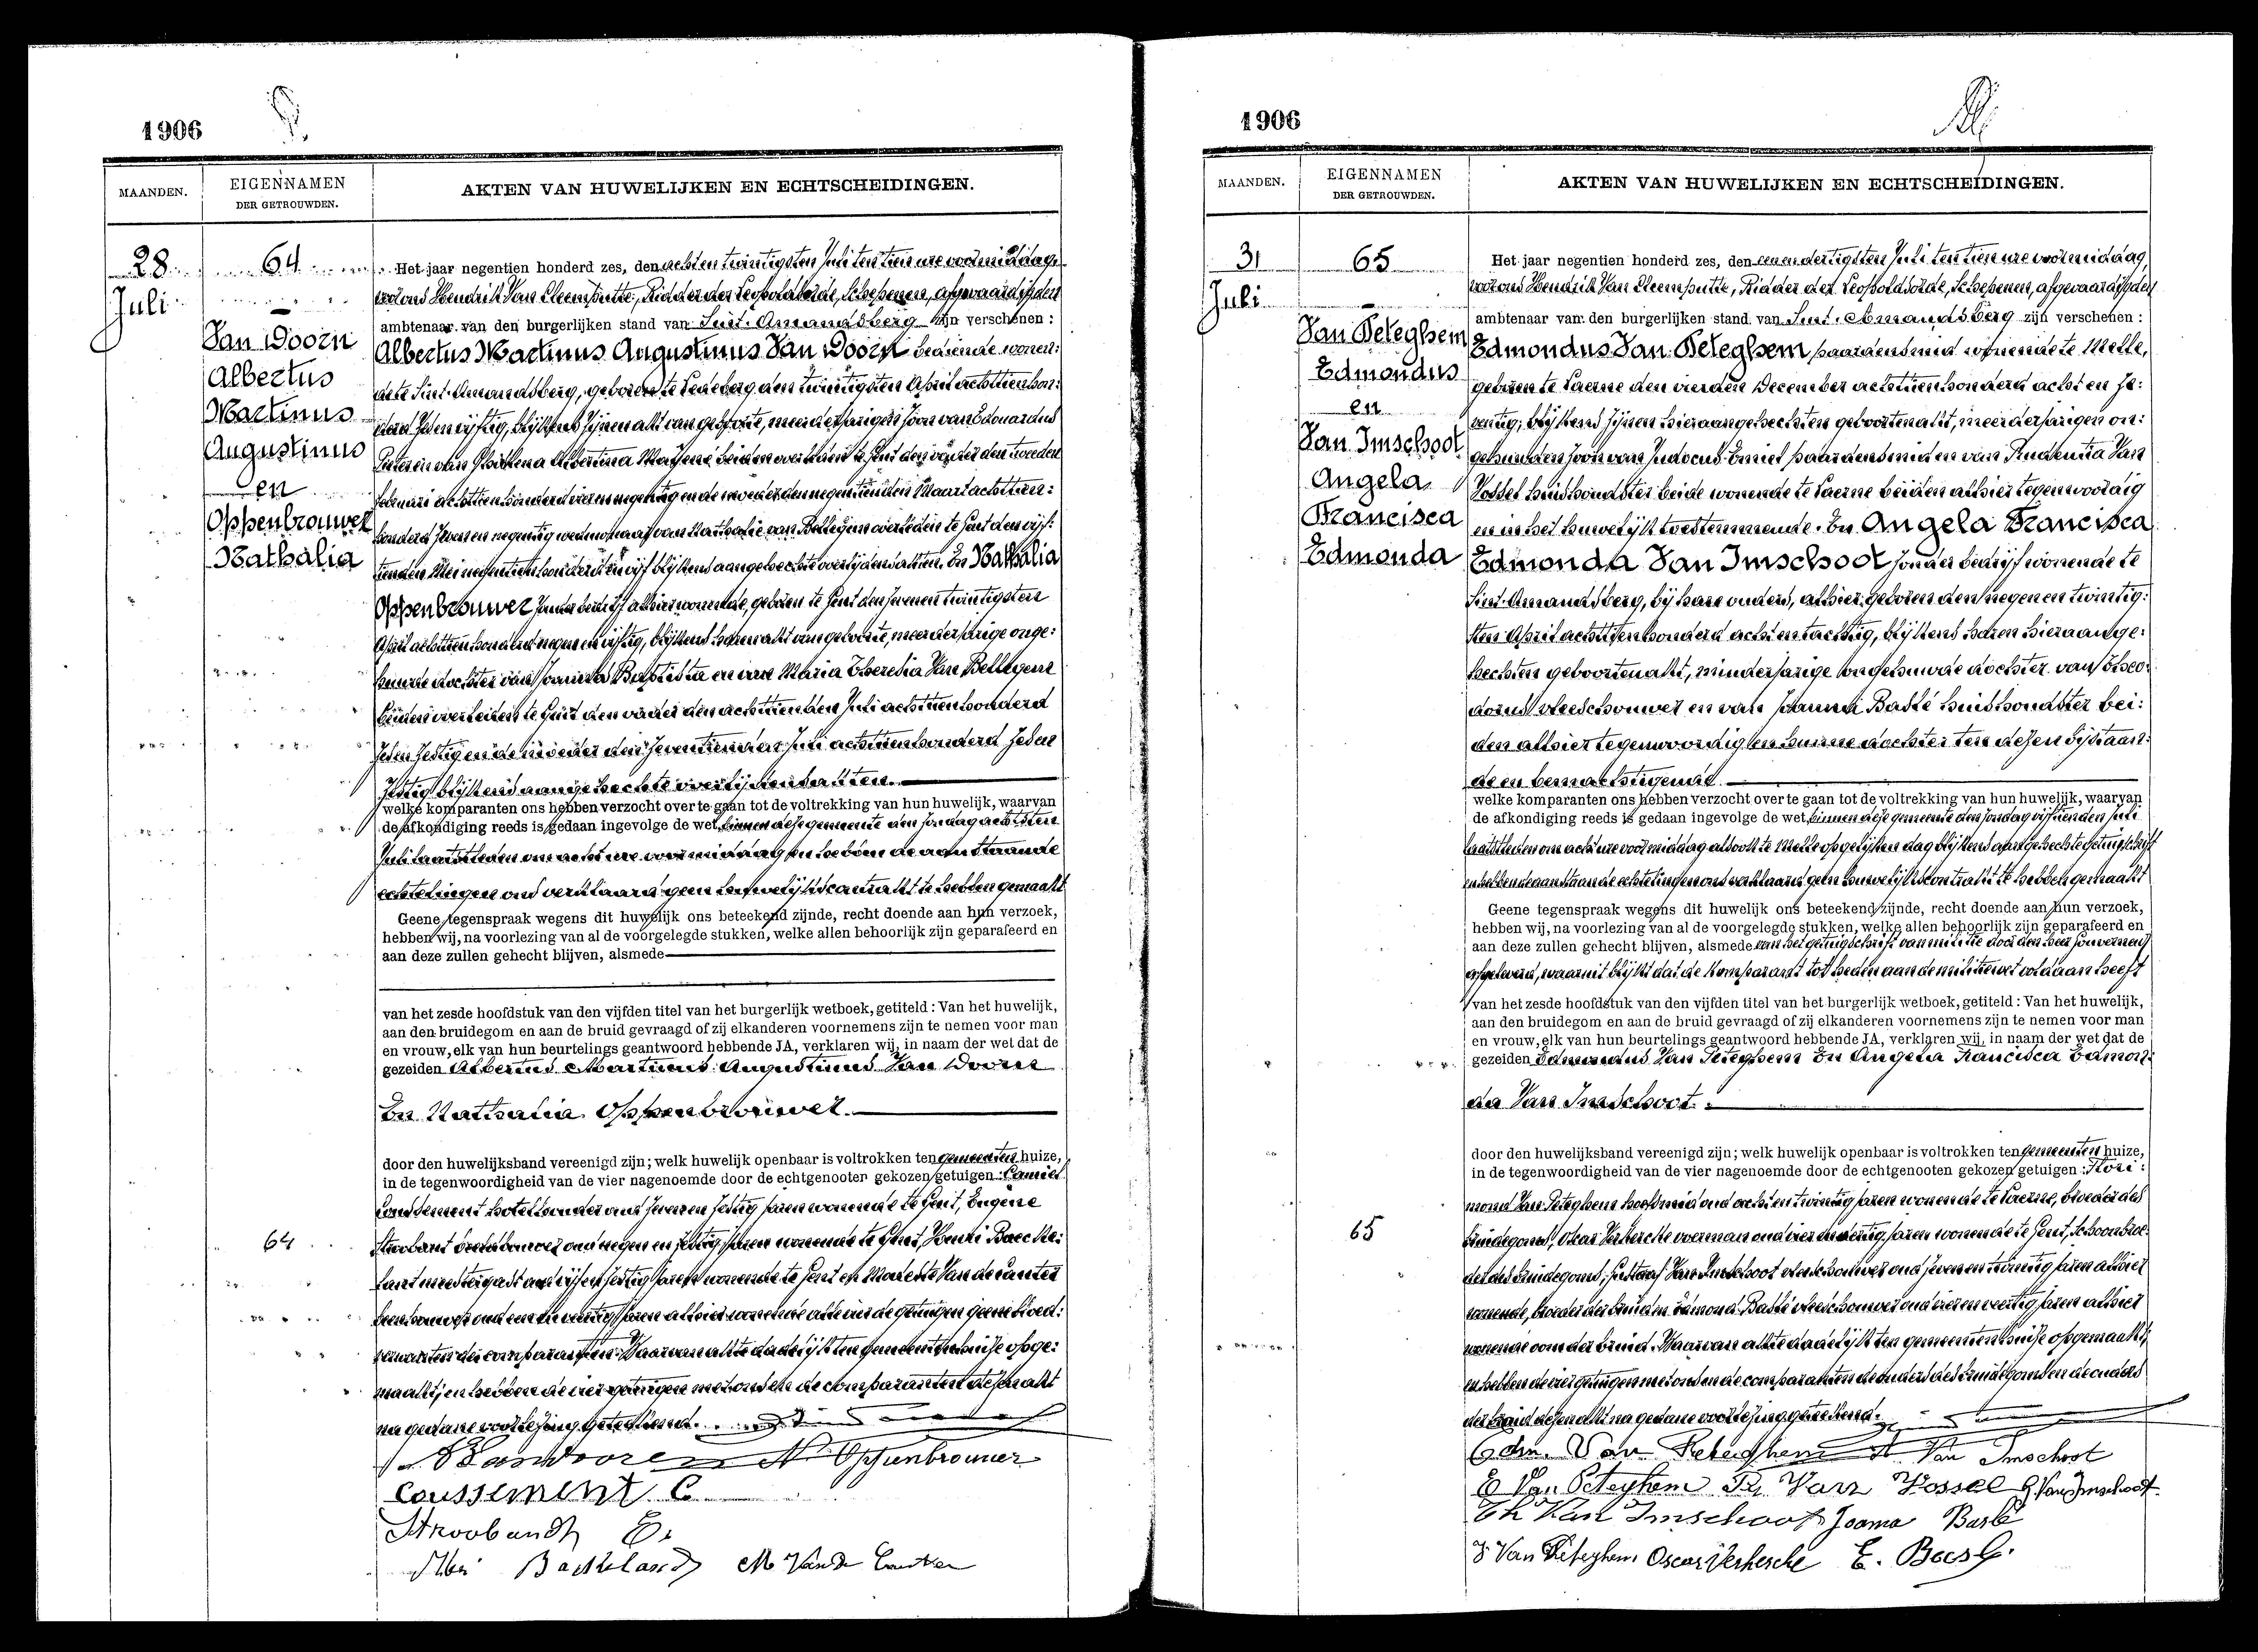 1906
MAANDEN.
EIGENNAMEN
DER GETROUWDEN.
AKTEN VAN HUWELIJKEN EN ECHTSCHEIDINGEN.
28
Juli
64
Van Doorn
Albertus
Martinus
Augustinus
en
Oppenbrouwer
Nathalia
Het jaar negentien honderd zes, den acht en twintigsten Juli ten tien ure voormiddag,
voor ons Hendrik Van Cleemputte, Ridder der Leopoldorde, Schepenen, afgevaardigden
ambtenaar van den burgerlijken stand van Sint. Amandsberg zijn verschenen :
Albertus Martinus Augustinus Van Doorn bediende wonen:
de te Sint-Amandsberg, geboren te Ledeberg den twintigsten April achttien hon:
derd zeven en vijftig, blijkens zijnen akt van geboorte, meerderjarigen zoon van Edouardus
Februari achttien honderd vier en negentig en de moeder den negentienden Maart achttien:
honderd zeven en negentig weduwnaar van Nathalie van Bellegem overleden te Gent den vijf:
tienden Mei negentien honderd en vijf blijkens aangehechte overlijdensakten. En Nathalia
Oppenbrouwer zonder bedrijf alhier wonende, geboren te Gent den zeven en twintigsten
April achttien honderd negen en vijftig, blijkens haren akt van geboorte, meerderjarige onge:
huwde dochter van Joannes Baptista en van Maria Theresia Van Bellegem
beiden overleden te Gent den vader den achttienden Juli achttien honderd
zeven zestig en de moeder den zeventienden Juli achttien honderd zeven
zestig blijkens aangehechte overlijdensakten.
welke komparanten ons hebben verzocht over te gaan tot de voltrekking van hun huwelijk, waarvan
de afkondiging reeds is gedaan ingevolge de wet, binnen deze gemeente den zondag achtsten
Juli laatstleden om acht ure voormiddag en hebben de aanstaande
echtelingen ons verklaard geen huwelijkscontrakt te hebben gemaakt
Geene tegenspraak wegens dit huwelijk ons beteekend zijnde, recht doende aan hun verzoek,
hebben wij, na voorlezing van al de voorgelegde stukken, welke allen behoorlijk zijn geparafeerd en
aan deze zullen gehecht blijven, alsmede
van het zesde hoofdstuk van den vijfden titel van het burgerlijk wetboek, getiteld : Van het huwelijk,
aan den bruidegom en aan de bruid gevraagd of zij elkanderen voornemens zijn te nemen voor man
en vrouw, elk van hun beurtelings geantwoord hebbende JA, verklaren wij, in naam der wet dat de
gezeiden Albertus Martinus Augustinus Van Doorn
En Nathalia Oppenbrouwer.
door den huwelijksband vereenigd zijn; welk huwelijk openbaar is voltrokken ten gemeenten huize,
in de tegenwoordigheid van de vier nagenoemde door de echtgenooten gekozen getuigen : Camiel
Coussement hotelhouder oud zeven en zestig jaren wonende te Gent, Eugène
64
Stroobant oud negen en zestig jaren wonende te Gent, Henri Baecke:
landt meestergast oud vijf en zestig jaren wonende te Gent en Modeste Van de Canter
oud een en veertig jaren alhier wonende alle vier de getuigen geene bloed:
verwanten der comparanten. Waarvan akte dadelijk ten gemeentenhuize opge:
maakt, en hebben de vier getuigen met ons en de comparanten dezen akt
na gedane voorlezing geteekend.
N. Oppenbrouwer
Coussement C.
Stroobandt E.
Baekelandt M Van de Canter
1906
MAANDEN.
EIGENNAMEN
DER GETROUWDEN.
AKTEN VAN HUWELIJKEN EN ECHTSCHEIDINGEN.
31
Juli
65
Van Peteghem
Edmondus
en
Van Imschoot
Angela
Francisca
Edmonda
Het jaar negentien honderd zes, den eenen dertigsten Juli ten tien ure voormiddag,
voor ons Hendrik Van Cleemputte, Ridder der Leopoldsorde, Schepenen, afgevaardigden
ambtenaar van den burgerlijken stand van Sint. Amandsberg zijn verschenen :
Edmondus Van Peteghem paardensmid wonende te Melle,
geboren te Laerne den vierden December achttien honderd acht en ze:
ventig, blijkens zijnen hieraangehechten geboortenakt, meerderjarigen on:
gehuwden zoon van Judocus-Emiel paardensmid en van Prudentia Van
Vossel huishoudster beide wonende te Laerne beiden alhier tegenwoordig
en in het huwelijk toestemmende. En Angela Francisca
Edmonda Van Imschoot zonder bedrijf wonende te
Sint-Amandsberg, bij hare ouders, alhier geboren den negen en twintig:
sten April achttien honderd acht en tachtig, blijkens haren hieraange:
hechten geboortenakt, minderjarige ongehuwde dochter van Theo:
dorus vleeschouwer en van Joanna Baslé huishoudster bei:
den alhier tegenwoordig en hunne dochter ten dezen bijstaan:
de en bemachtigende.
welke komparanten ons hebben verzocht over te gaan tot de voltrekking van hun huwelijk, waarvan
de afkondiging reeds is gedaan ingevolge de wet, binnen deze gemeente den zondag vijftienden Juli
laatstleden om acht ure voormiddag alsook te Melle op gelijken dag blijkens aangehecht getuigschrift
en hebben de aanstaande echtelingen ons verklaard geen huwelijkscontrakt te hebben gemaakt
Geene tegenspraak wegens dit huwelijk ons beteekend zijnde, recht doende aan hun verzoek,
hebben wij, na voorlezing van al de voorgelegde stukken, welke allen behoorlijk zijn geparafeerd en
aan deze zullen gehecht blijven, alsmede van het getuigschrift van militie door den heer Gouverneur
afgeleverd, waaruit blijkt dat de komparant tot heden aan de militiewet voldaan heeft
van het zesde hoofdstuk van den vijfden titel van het burgerlijk wetboek, getiteld : Van het huwelijk,
aan den bruidegom en aan de bruid gevraagd of zij elkanderen voornemens zijn te nemen voor man
en vrouw, elk van hun beurtelings geantwoord hebbende JA, verklaren wij, in naam der wet dat de
gezeiden Edmondus Van Peteghem En Angela Francisca Edmon:
da Van Imschoot.
door den huwelijksband vereenigd zijn; welk huwelijk openbaar is voltrokken ten gemeenten huize,
in de tegenwoordigheid van de vier nagenoemde door de echtgenooten gekozen getuigen : Flori:
mond Van Peteghem hoefsmid oud acht en twintig jaren wonende te Laerne, broeder des
65
bruidegoms, Oscar Verhercke voerman oud vier en dertig jaren wonende te Gent, schoonbroe:
der des bruidegoms, Gustaaf Van Imschoot vleeschouwer oud zeven en twintig jaren alhier
wonende, broeder der bruid en Edmond Baslé vleeschouwer oud vier en veertig jaren alhier
wonende oom der bruid. Waarvan akte dadelijk ten gemeentenhuize opgemaakt,
en hebben de vier getuigen met ons en de comparanten de ouders des bruidegoms en de ouders
der bruid dezen akt na gedane voorlezing geteekend.
Edm. Van Peteghem A. Van Imschoot
E Van Peteghem Pr Van Vossel G. Van Imschoot
Th Van Imschoot Joanna Baslé
F Van Peteghem Oscar Verhercke E. Baslé.